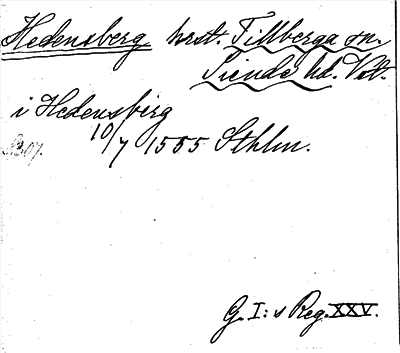 Hedensberg. hrst. Tillberga sn.
Siende hd. Vstl.
i Hedensberg
10/7 1555 Sthlm.
G. I:s Reg. XXV.